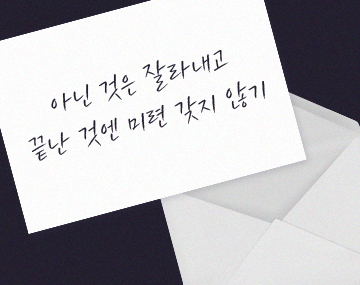 아닌 것은 잘라내고
끝난 것엔 미련 갖지 않기